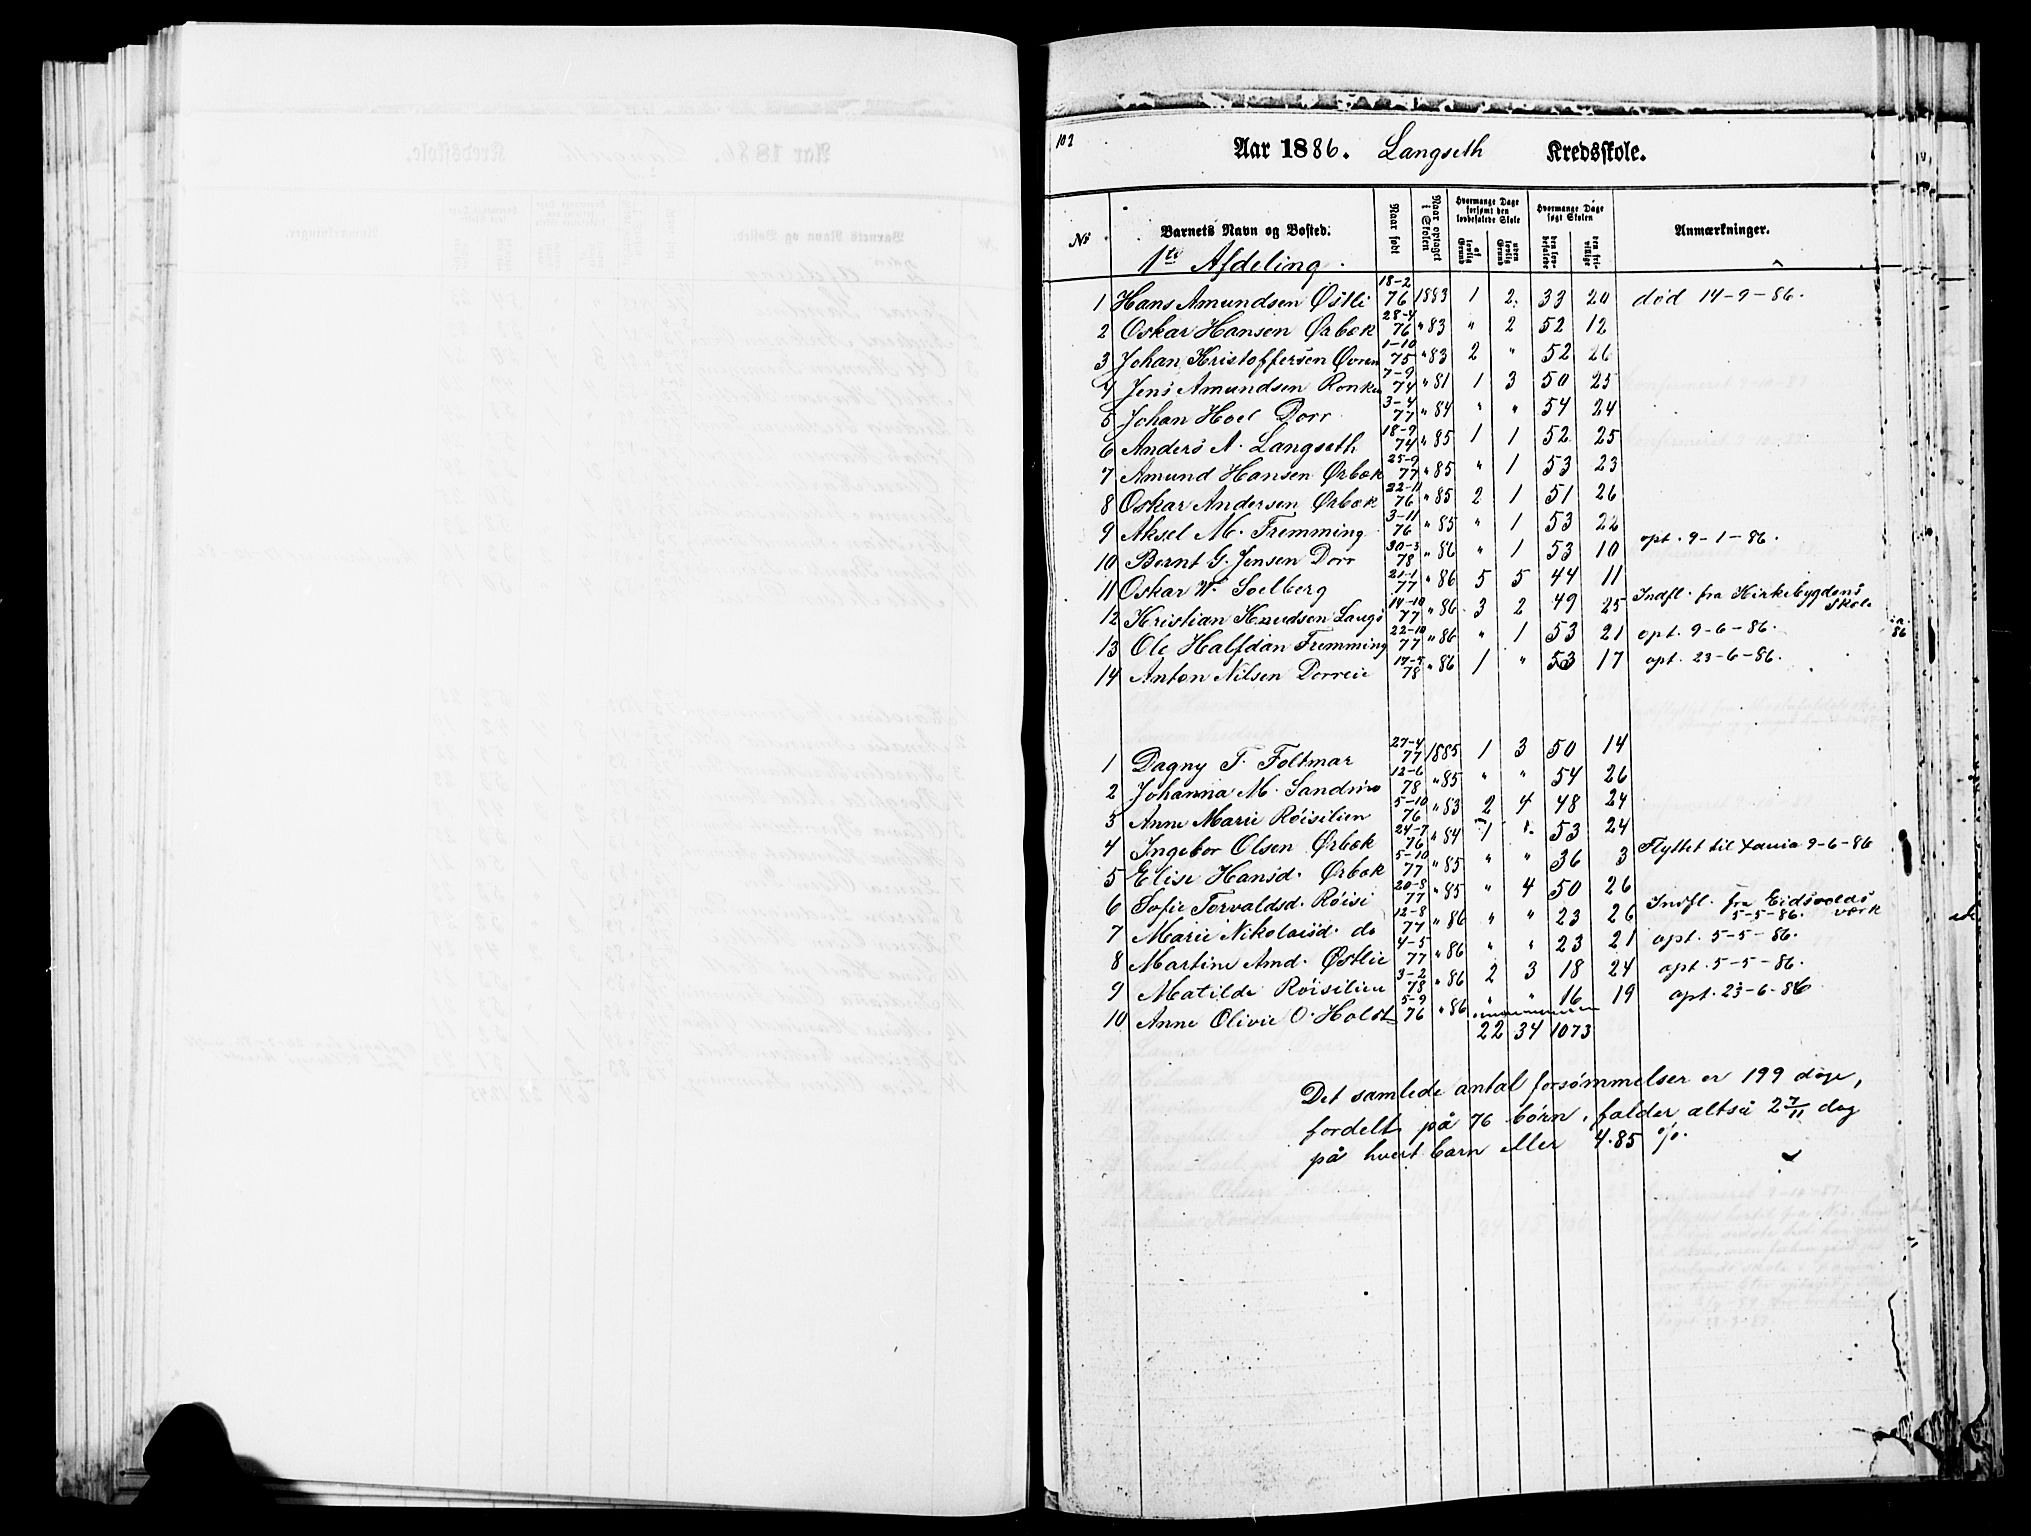 102
Aar 1886. Langseth Kredsskole.
No
Barnets Navn og Bosted.
Naar født
Naar optaget i Skolen
Hvormange Dage forsømt den lovbefalede Skole
af lovlig Grund
uden lovlig Grund
Hvormange Dage søgt Skolen
den lovbefalede
den frivillige
Anmærkninger.
1te Afdeling.
1 Hans Amundsen Østli 18-2 76 1883 1 2 33 20 død 14-9-86.
2 Oskar Hansen Ørbæk 28-4 76 " 83 " 2 52 12
3 Johan Kristoffersen Øvren 1-10 75 " 83 2 " 52 26
4 Jens Amundsen Ronken 7-9 74 " 81 1 3 50 25
5 Johan Hoel Dorr 3-4 77 " 84 " " 54 24
6 Anders A. Langseth 18-9 74 " 85 1 1 52 25
7 Amund Hansen Ørbæk 25-9 77 " 85 " 1 53 23
8 Oskar Andersen Ørbæk 22-11 76 " 85 2 1 51 26
9 Aksel M. Fremming 3-11 76 " 85 " 1 53 22
10 Bernt G. Jensen Dorr 30-3 78 " 86 " 1 53 10 opt. 9-1-86.
11 Oskar W. Soelberg 21-1 77 " 86 5 5 44 11
12 Kristian Knudsen Langs 14-10 77 " 86 3 2 49 25 Indfl. fra Kirkebygdens Skole
13 Ole Halfdan Fremming 22-10 77 " 86 " 1 53 21 opt. 9-6-86.
14 Anton Nilsen Dorreie 14-5 78 " 86 1 " 53 17 opt. 23-6-86.
1 Dagny T. Foltmar 27-4 77 1885 1 3 50 14
2 Johanna M. Sandmo 12-6 78 " 85 " " 54 26
3 Anne Marie Røisilien 5-10 76 " 83 2 4 48 24
4 Ingebor Olsen Ørbæk 24-7 76 " 84 1 " 53 24
5 Elise Hansd. Ørbæk 5-10 77 " 85 " " 36 3 Flyttet til Xania 9-6-86
6 Sofie Torvaldsd. Røisi 20-8 77 " 85 " 4 50 26
7 Marie Nikolaisd. do 12-8 77 " 86 " " 23 26 Indfl. fra Eidsvolds værk 5-5-86.
8 Martine Amd. Østlie 4-5 77 " 86 " " 23 21 opt. 5-5-86.
9 Matilde Røisilien 3-2 78 " 86 2 3 18 24 opt. 5-5-86.
10 Anne Olivie O. Holst 5-9 76 " 86 " " 16 19 opt. 23-6-86
22 34 1073
Det samlede antal forsømmelser er 199 dage,
fordelt på 76 børn, falder altså 2 7/11 dag
på hvert barn eller 4.85 %.